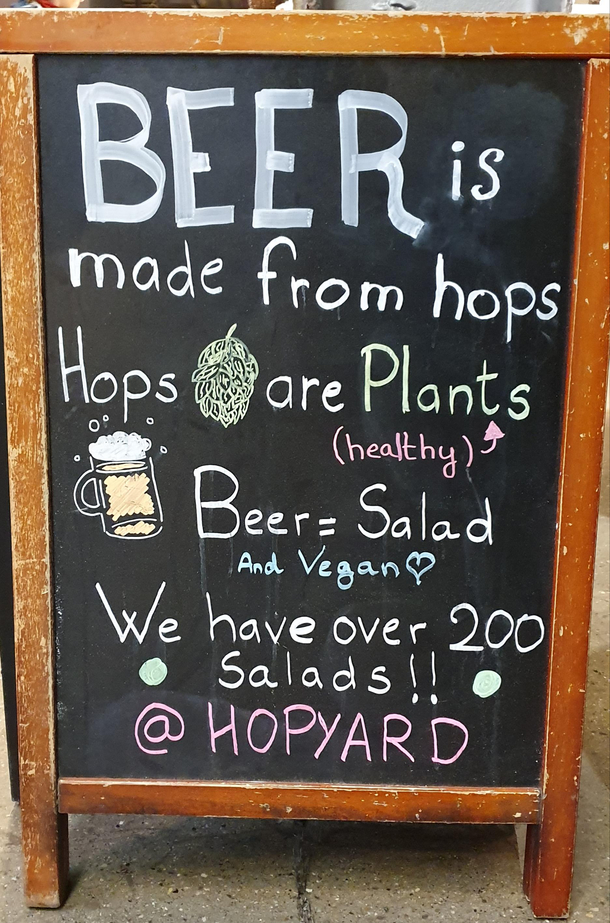 BEER is
made from hops
Hops are Plants
(healthy)
Beer = Salad
And Vegan ♡
We have over 200
Salads!!
@ HOPYARD